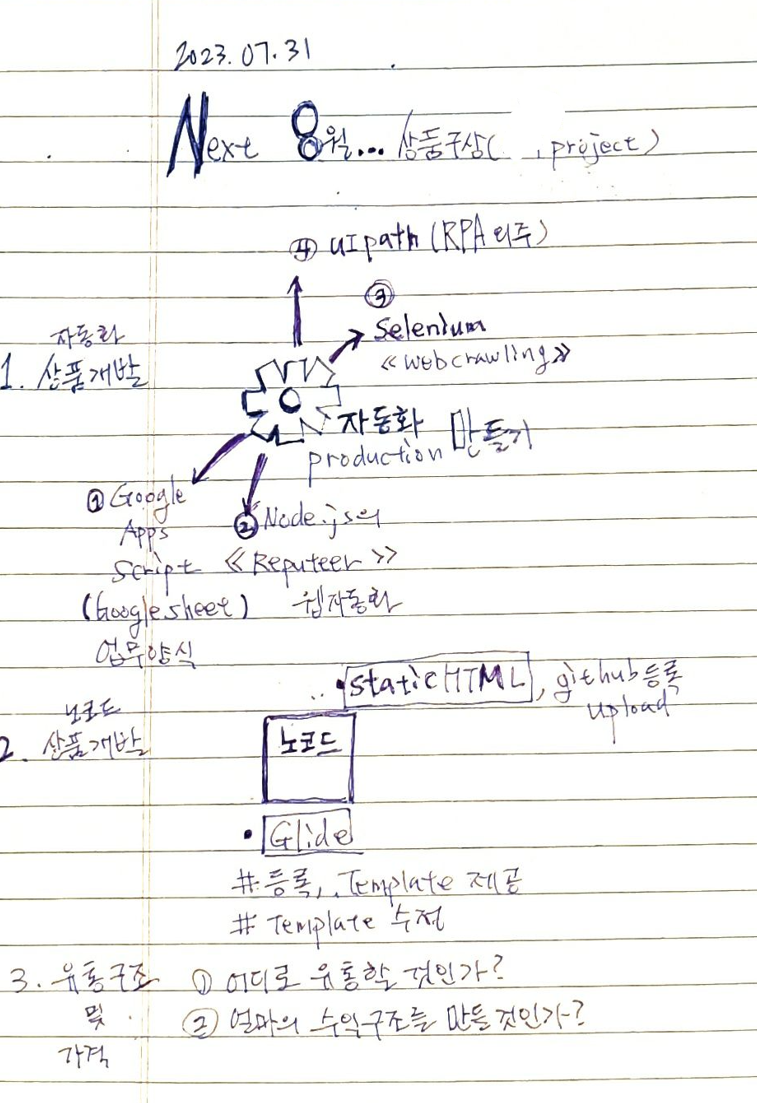 2023.07.31
Next 8월... 상품구상( , project)
④ UIpath (RPA 외주)
③
Selenium
≪webcrawling≫
자동화
1. 상품개발
자동화 만들기
production
① Google
Apps
Script
(Google sheet)
업무양식
② Node.js의
≪Reputeer≫
웹자동화
.. • static HTML, github 등록
upload
노코드
2. 상품개발
노코드
• Glide
# 등록, Template 제공
# Template 수정
3. 유통구조
및
가격
① 어디로 유통할 것인가?
② 얼마의 수익구조를 만들것인가?